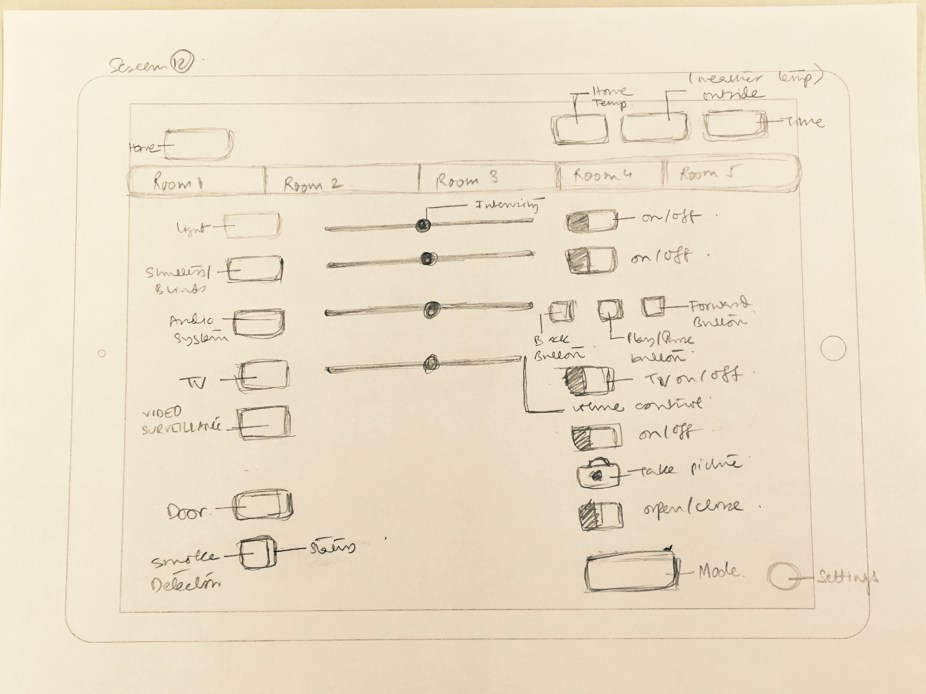 Screen 12
(weather temp)
Home
Temp
outside
Time
Home
Room 1
Room 2
Room 3
Room 4
Room 5
Intensity
Light
on/off
Shutters/
Blinds
on/off
Audio
System
Back
Button
Play/Pause
button
Forward
Button
TV
TV on/off
volume control
VIDEO
SURVEILLANCE
on/off
Take picture
Door
open/close
Smoke
Detector
Status
Mode
Settings